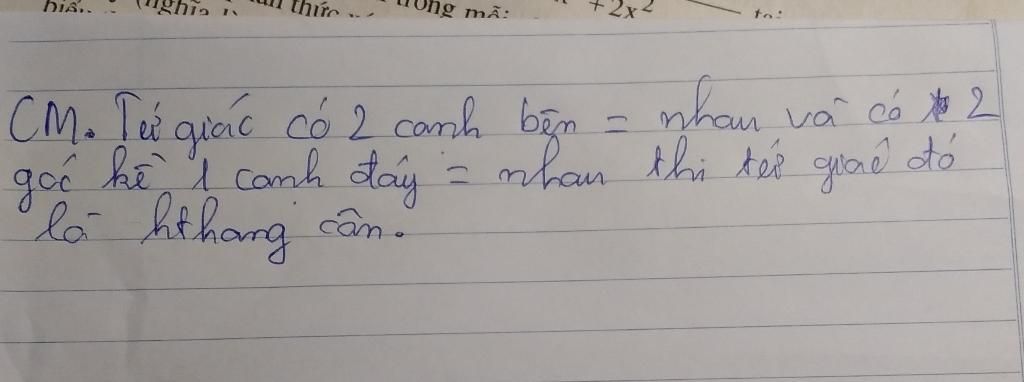 + 2x²
trong mẫ:
CM. Tứ giác có 2 canh bên = nhau và có 2
góc kề 1 canh đáy = nhau thi tứ giác đó
là hthang cân.